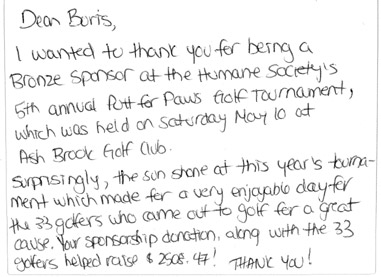 Dear Boris,
I wanted to thank you for being a
Bronze Sponsor at the Humane Society's
5th annual Putt for Paws Golf Tournament,
which was held on Saturday May 10 at
Ash Brook Golf Club.
Surprisingly, the sun shone at this year's tourna-
ment which made for a very enjoyable day for
the 33 golfers who came out to golf for a great
cause. Your sponsorship donation, along with the 33
golfers helped raise $2508.47! THANK YOU!